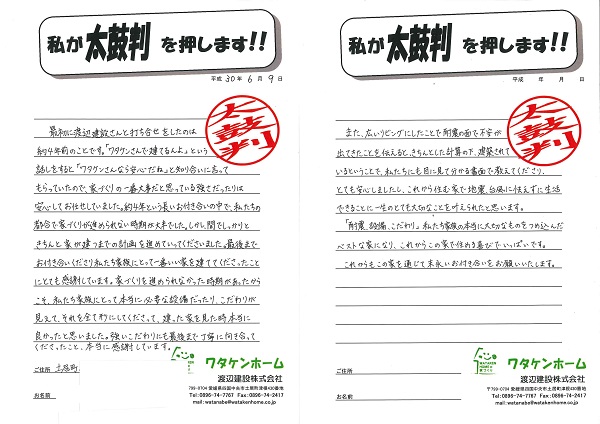 私が太鼓判を押します!!
平成 30年 6月 9日
太鼓判
最初に渡辺建設さんと打ち合せをしたのは
約4年前のことです。「ワタケンさんで建てるんよ」という
話しをすると「ワタケンさんなら安心だね」と知り合いに言って
もらっていたので、家づくりの一番大事だと思っている強さだったりは
安心してお任せしていました。約4年という長いお付き合いの中で、私たちの
都合で家づくりが進められない時期が大半でした。しかし、間でしっかりと
きちんと家が建つまでの計画を進めていってくださいました。最後まで
お付き合いくださり私たち家族にとって一番いい家を建ててくださったこ
とにとても感謝しています。家づくりを進められなかった時期があったから
こそ、私たち家族にとって本当に必要な設備だったり、こだわりが
見えて、それを全て形にしてくださって、建った家を見た時本当に
良かったと思いました。強いこだわりにも最後まで丁寧に向き合って
くださったこと、本当に感謝しています。
ご住所 土居町
お名前
ワタケンホーム
渡辺建設株式会社
799-0704 愛媛県四国中央市土居町津根430番地
Tel:0896-74-7767 Fax:0896-74-2417
mail:watanabe@watakenhome.co.jp
私が太鼓判を押します!!
平成 年 月 日
太鼓判
また、広いリビングにしたことで耐震の面で不安が
出てきたことを伝えると、きちんとした計算の下、建築されて
いるということで、私たちにも目に見て分かる書面で教えてくださり、
とても安心しましたし、これから住む家で地震、台風に怯えずに生活
できることに一生のとても大切なことを叶えられたと思います。
「耐震、設備、こだわり」私たち家族の本当に大切なものをつめ込んだ
ベストな家になり、これからこの家で住める喜びでいっぱいです。
これからもこの家を通じて末永いお付き合いをお願いいたします。
ご住所
お名前
ワタケンホーム
渡辺建設株式会社
〒799-0704 愛媛県四国中央市土居町津根430番地
Tel:0896-74-7767 Fax:0896-74-2417
mail:watanabe@watakenhome.co.jp